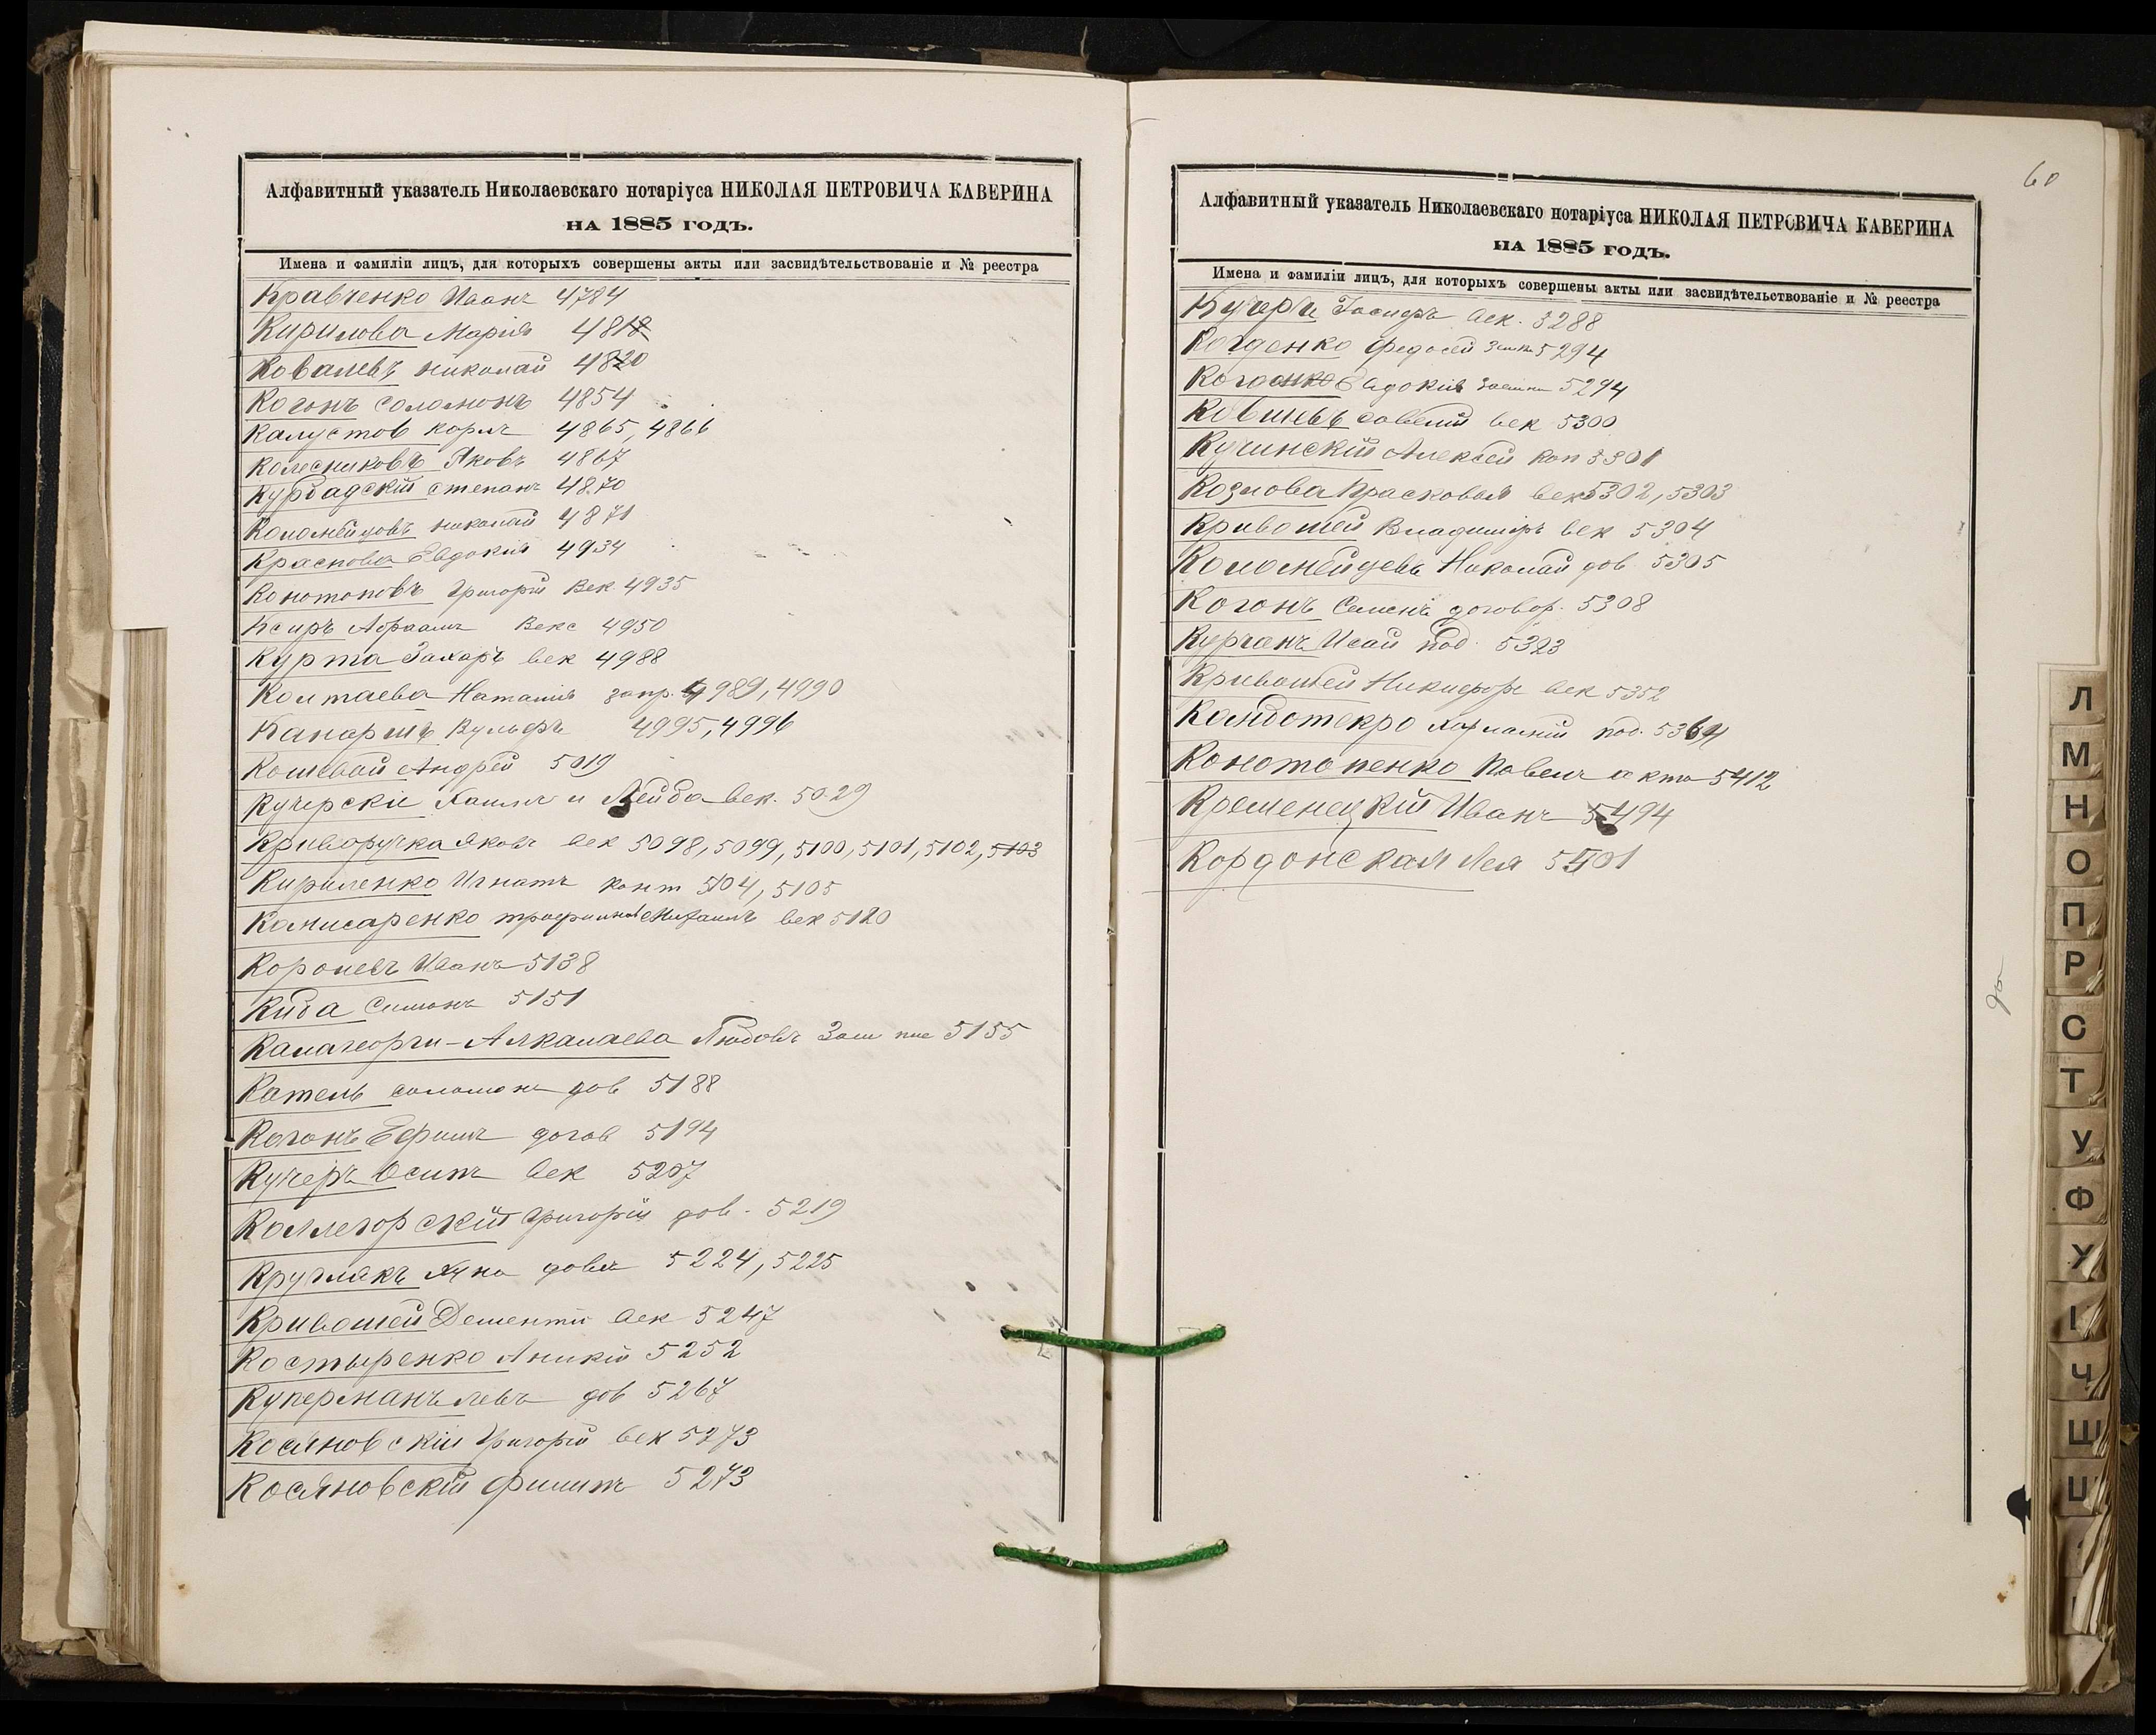 Алфавитный указатель Николаевскаго нотаріуса НИКОЛАЯ ПЕТРОВИЧА КАВЕРИНА
НА 1885 ГОДЪ.
Имена и фамиліи лицъ, для которыхъ совершены акты или засвидѣтельствованіе и № реестра
Кравченко Иванъ 4784
Кирилова Марія 4818
Ковалевъ николай 4820
Когонъ соломонъ 4854
Калустов корпъ 4865, 4866
Колесниковъ Яковъ 4867
Курбадскій степанъ 4870
Коломейцовъ николай 4871
Краснова Евдокія 4934
Конотоповъ Григорій Век. 4935
Ксиръ Абраамъ Векс 4950
Курта Захаръ век 4988
Колтаева Наталія запр. 4989, 4990
Канаршъ Вульфъ 4995, 4996
Кошевай Андрей 5019
Кучерскіе Хаимъ и Лейба век. 5029
Криворучка Яковъ век 5098, 5099, 5100, 5101, 5102, 5103
Кириленко Игнатъ конт 5104, 5105
Комисаренко век 5120
Королевъ Иванъ 5138
Киба Симонъ 5151
Калагеорги-Алкалаева Любовь 5155
Катель соломонъ дов 5188
Когонъ Ефимъ догов 5194
Кучеръ Осипъ век 5207
Коллегорскій Григорій дов. 5219
Круглякъ Хуна довѣ 5224, 5225
Кривошей Дементій век 5247
Костыренко Аникій 5252
Куперманъ левъ дов 5267
Косяновскій Григорій век 5273
Косяновскій Филипъ 5273
60
Алфавитный указатель Николаевскаго нотаріуса НИКОЛАЯ ПЕТРОВИЧА КАВЕРИНА
НА 1885 ГОДЪ.
Имена и фамиліи лицъ, для которыхъ совершены акты или засвидѣтельствованіе и № реестра
Кучеръ Іосифъ век. 3288
Феодосій 5294
Евдокія 5294
савелій век 5300
Кучинскій Алексей коп 5301
Козлова Прасковья век 5302, 5303
Кривошей Владиміръ век 5304
Коломейцевъ Николай дов. 5305
Когонъ Семенъ договор. 5308
Курганъ Исай под. 5323
Кривошей Никифоръ век 5352
под. 5364
Конотопенко Павелъ акта 5412
Кременецкій Иванъ 5494
Кордонская Лея 5501
Л
М
Н
О
П
Р
С
Т
У
Ф
Х
І
Ч
Ш
Щ